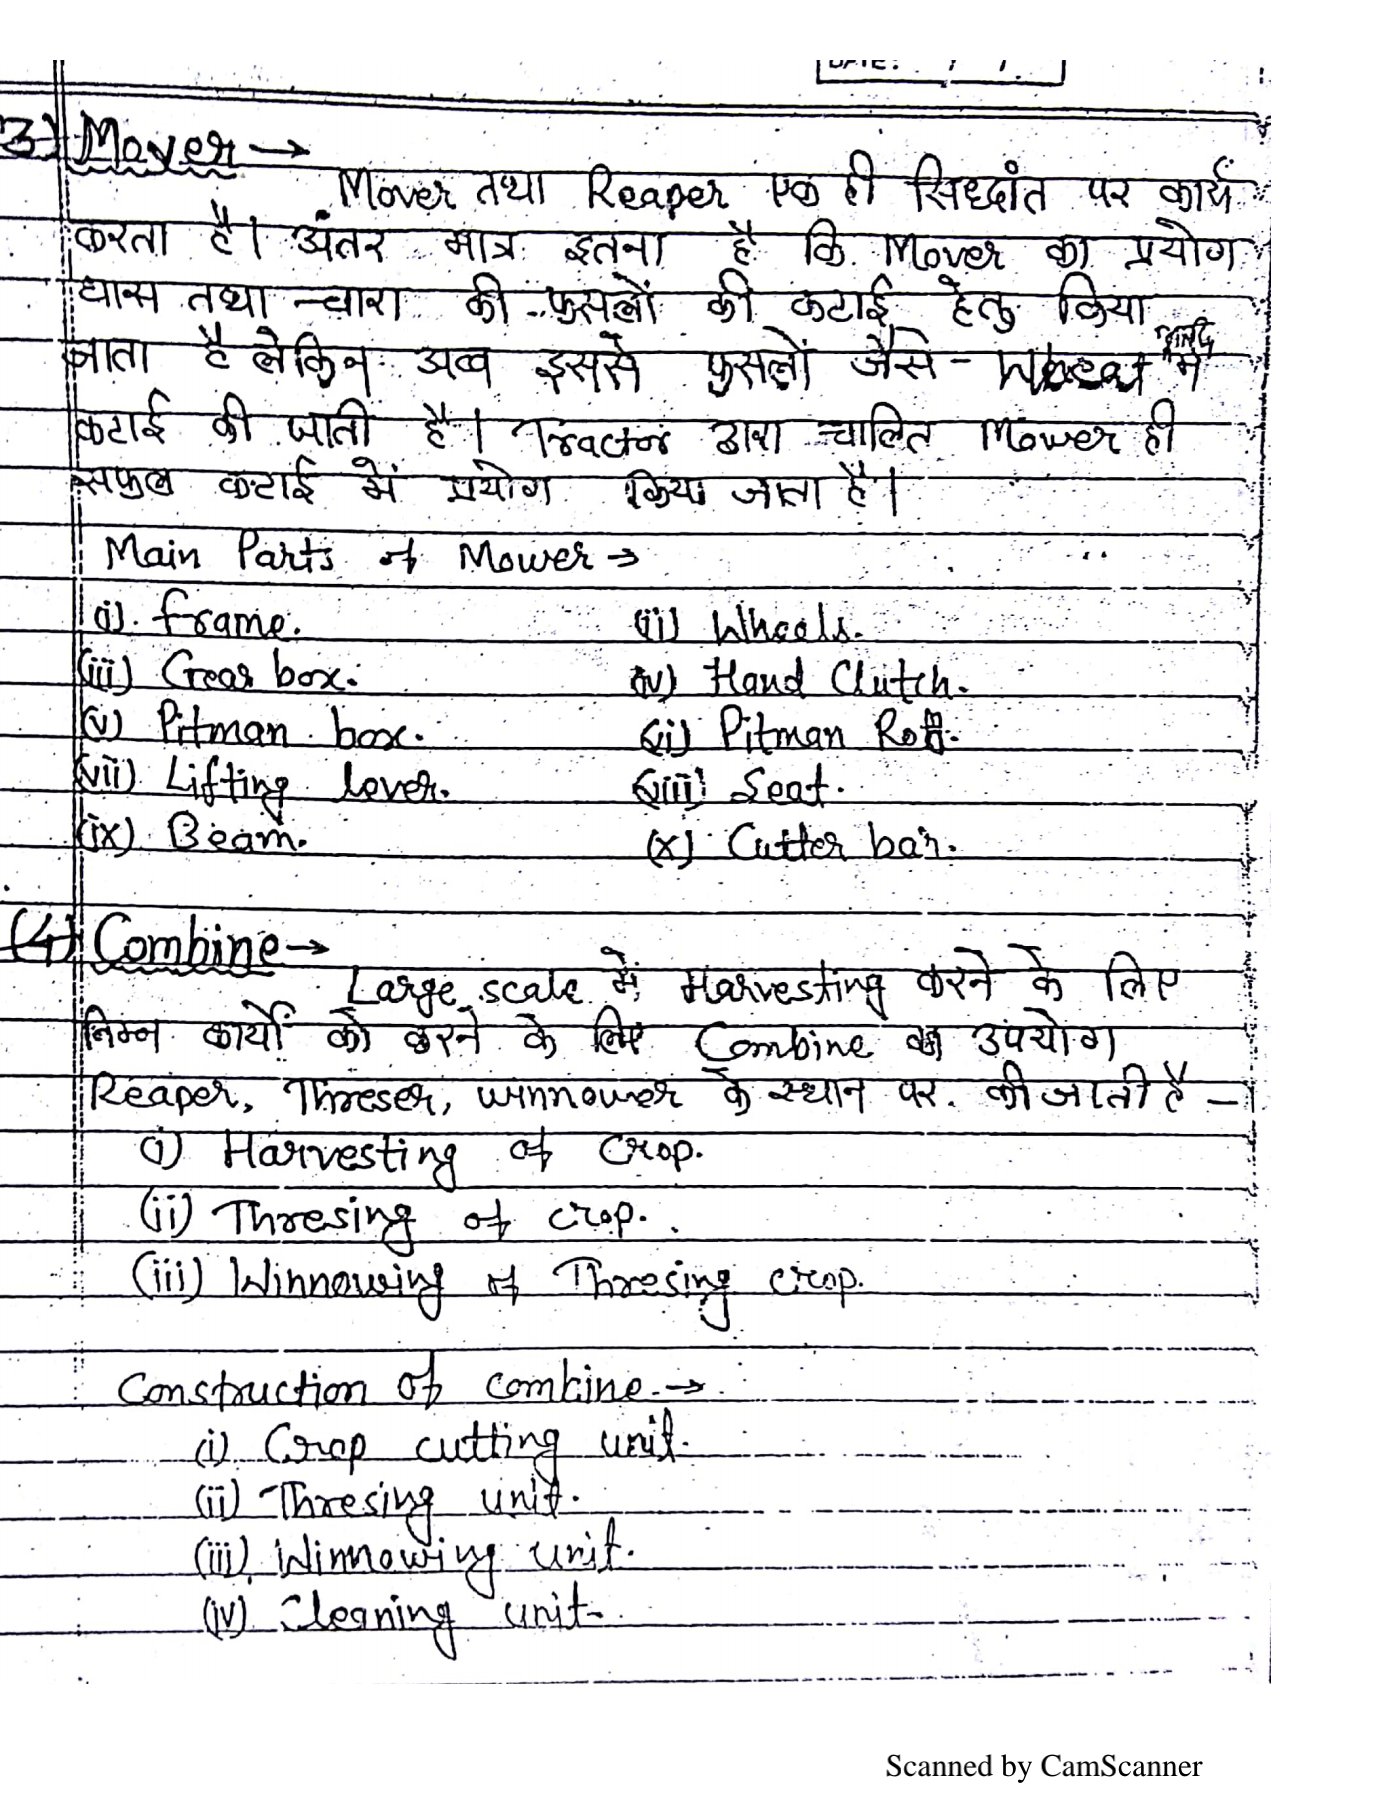 DATE: / /
(3) Mover →
Mover तथा Reaper एक ही सिध्दांत पर कार्य
करता है। अंतर मात्र इतना है कि Mover का प्रयोग
घास तथा चारा की फसलों की कटाई हेतु किया
जाता है लेकिन अब इससे फसलों जैसे - Wheat में
कटाई की जाती है। Tractor द्वारा चालित Mower ही
सफल कटाई में प्रयोग किया जाता है।
Main Parts of Mower →
(i). Frame. (ii) Wheels.
(iii) Gear box. (iv) Hand Clutch.
(v) Pitman box. (vi) Pitman Rod.
(vii) Lifting lever. (viii) Seat.
(ix) Beam. (x) Cutter bar.
(4) Combine →
Large scale में Harvesting करने के लिए
निम्न कार्यों को करने के लिए Combine का उपयोग
Reaper, Threser, winnower के स्थान पर. की जाती है –
(i) Harvesting of crop.
(ii) Thresing of crop.
(iii) Winnowing of Thresing crop.
Construction of combine. →
(i) Crop cutting unit.
(ii) Thresing unit.
(iii) Winnowing unit.
(iv) Cleaning unit-
Scanned by CamScanner